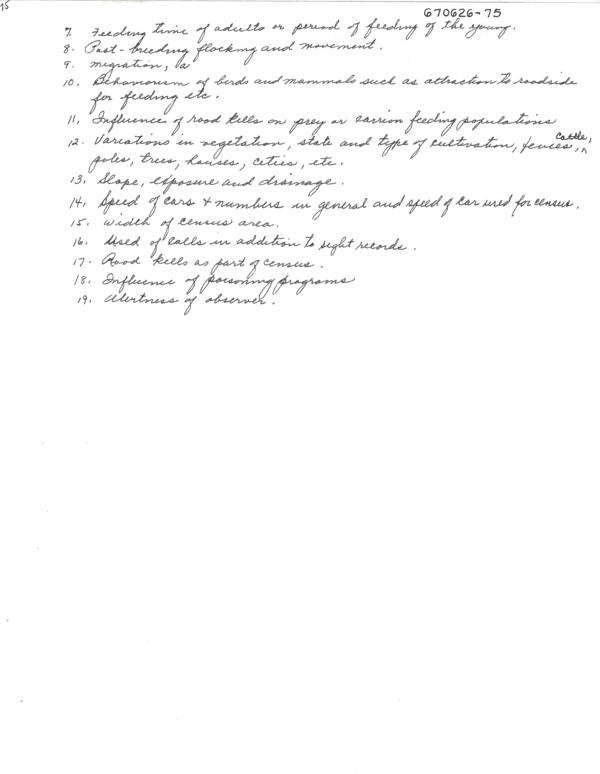 75
670626-75
7. Feeding time of adults or period of feeding of the young.
8. Post-breeding flocking and movement.
9. Migration, a
10. Behaviorism of birds and mammals such as attraction to roadside
for feeding etc.
11. Influence of road kills on prey or carrion feeding populations
12. Variations in vegetation, state and type of cultivation, fences, ^ cattle,
poles, trees, houses, cities, etc.
13. Slope, exposure and drainage.
14. Speed of cars + numbers in general and speed of car used for census.
15. Width of census area.
16. Used of calls in addition to sight records.
17. Road kills as part of census.
18. Influence of poisoning programs
19. Alertness of observer.